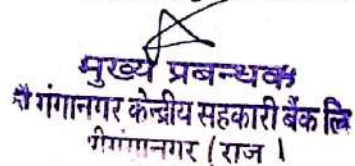 मुख्य प्रबन्धक
गंगानगर केन्द्रीय सहकारी बैंक लि
श्रीगंगानगर (राज )